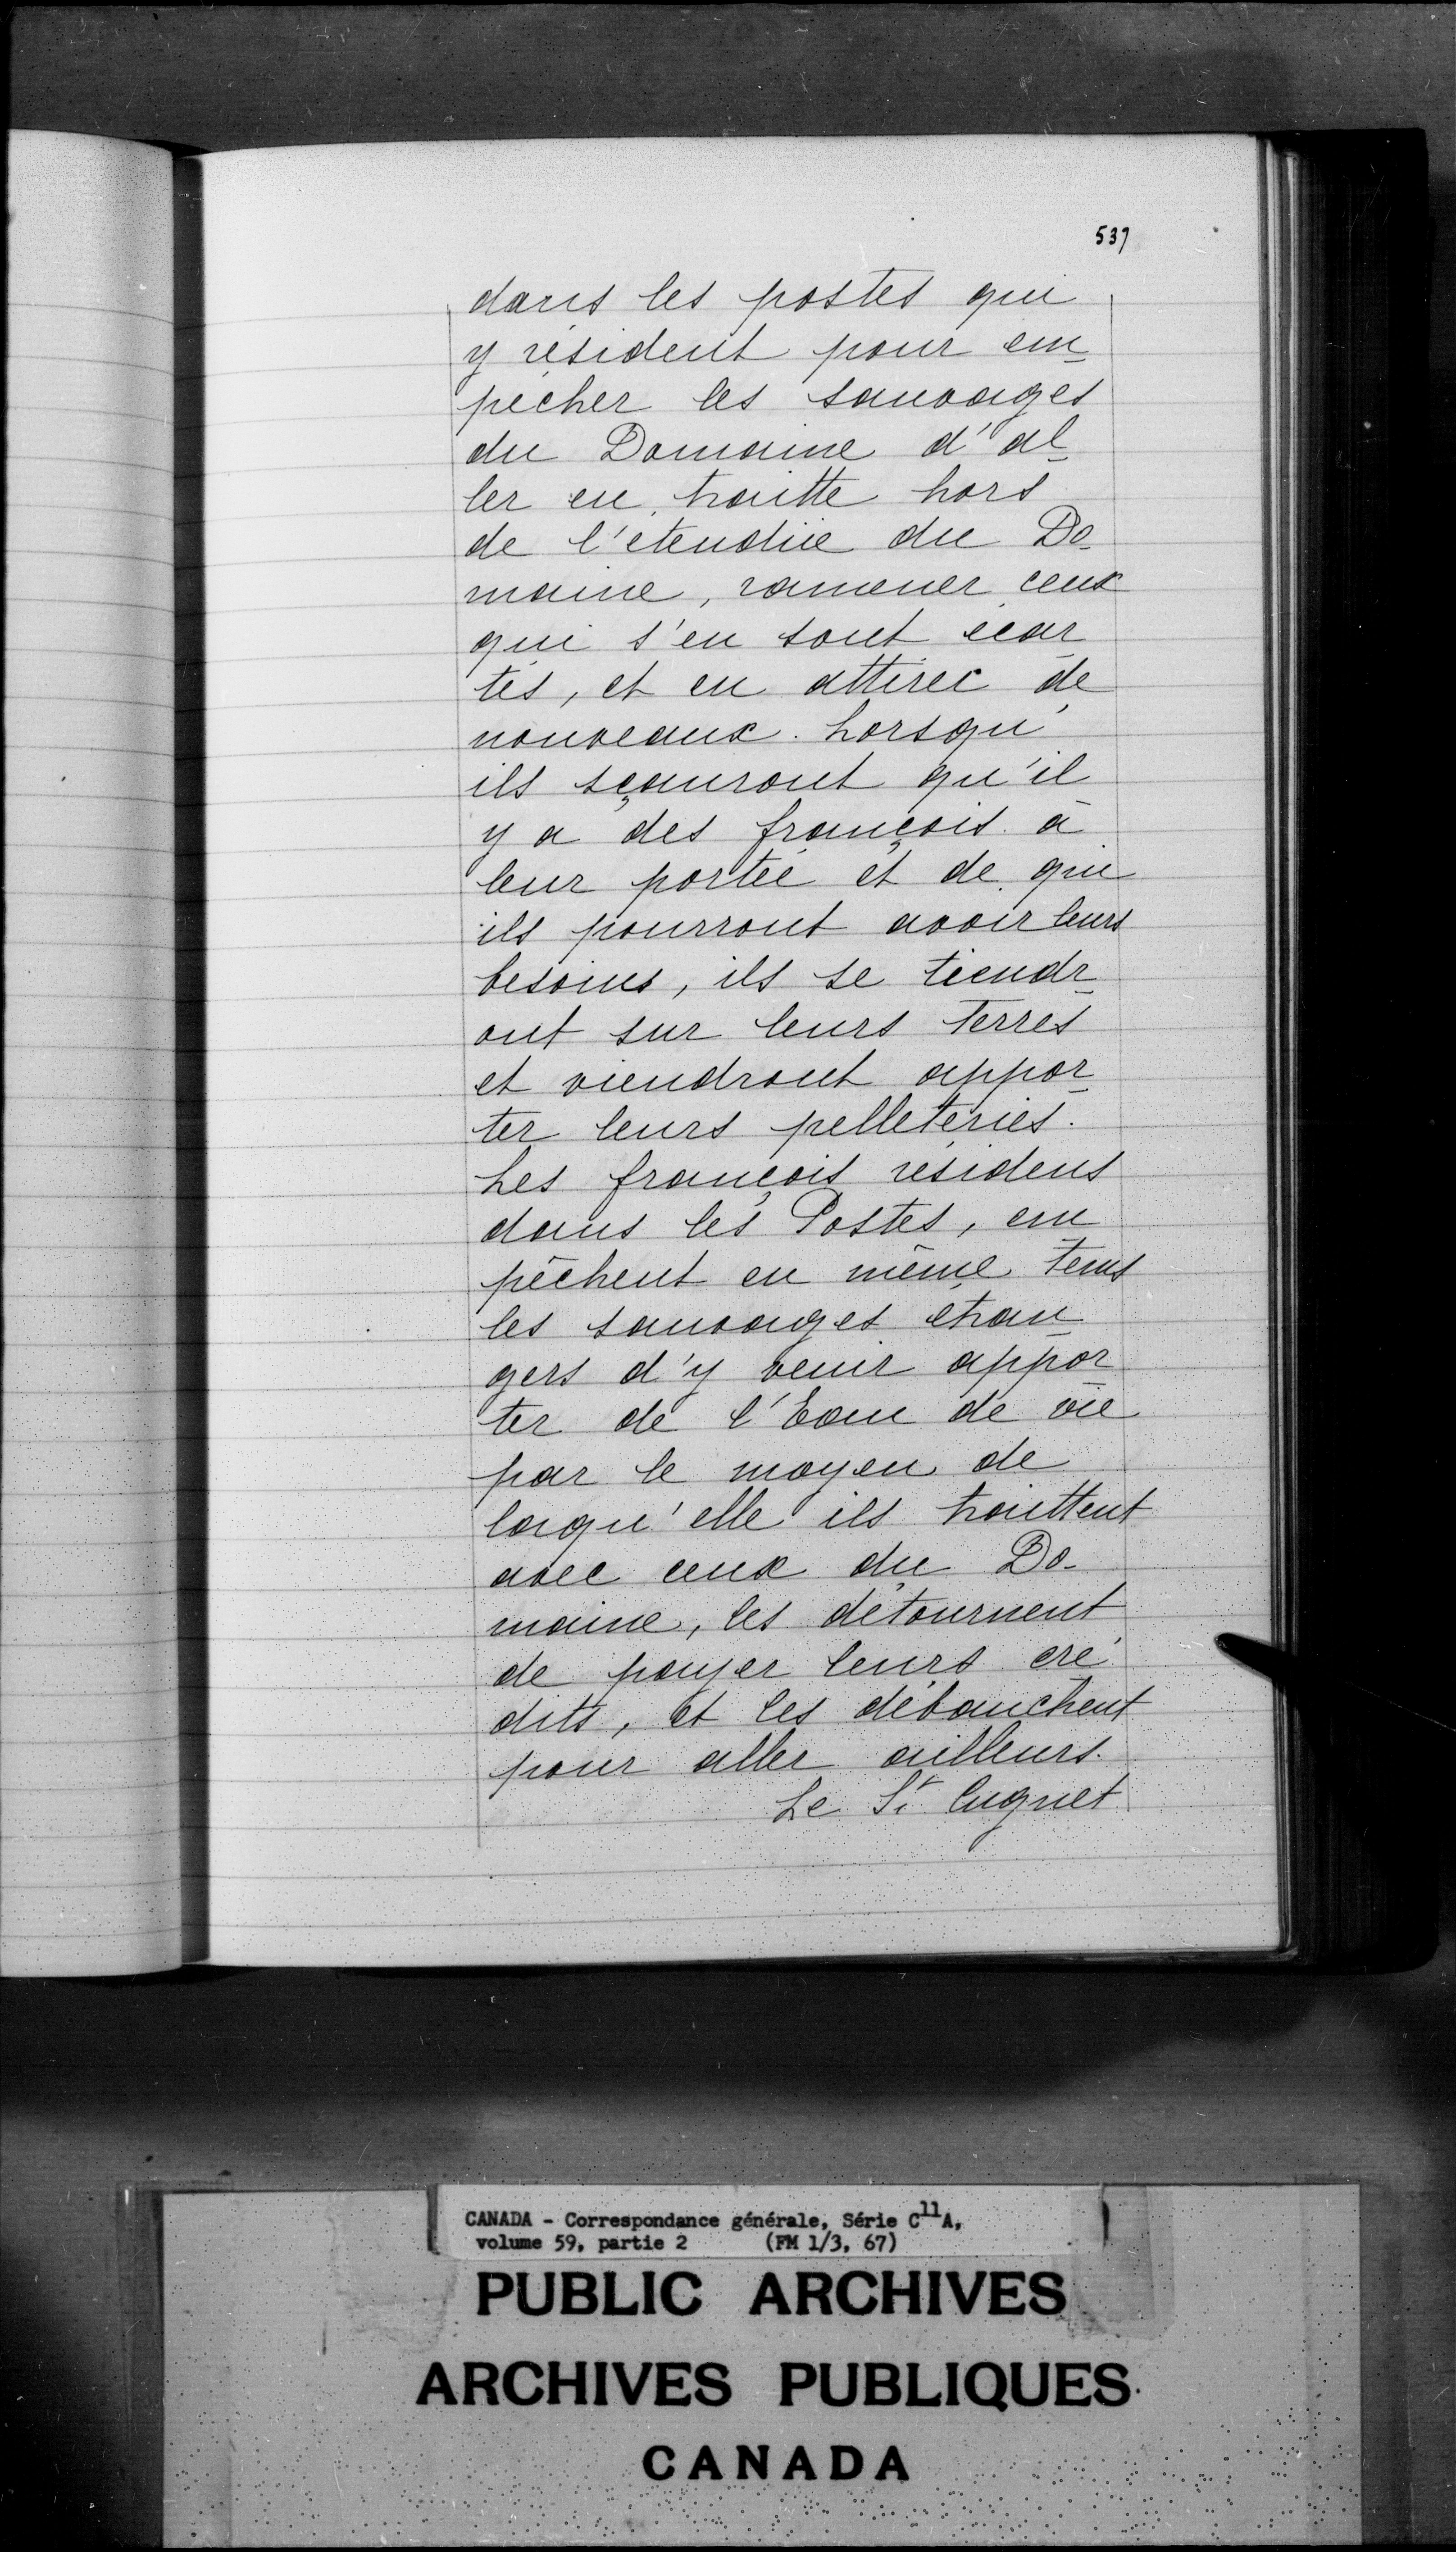 537
dans les postes qui
y résident pour em-
pécher les sauvages
du Domaine d'al-
ler en traitte hors
de l'etendüe du Do-
maine, ramener ceux
qui s'en sont ecar-
tés, et en attirer de
nouveaux. Lorsqu'
ils sçauront qu'il
y a des françois à
leur portée et de qui
ils pourront avoir leurs
besoins, ils se tiendr-
ont sur leurs terres
et viendront appor-
ter leurs pelleteries.
Les françois résidens
dans les Postes, em-
pêchent en même tems
les sauvages etran-
gers d'y venir appor-
ter de l'Eau de vie
par le moyen de
laqu'elle ils traittent
avec ceux du Do-
maine, les détournent
de payer leurs cré-
dits, et les débauchent
pour aller ailleurs.
Le Sr Cugnet
CANADA - Correspondance générale, Série C11A,
volume 59, partie 2 (FM 1/3, 67)
PUBLIC ARCHIVES
ARCHIVES PUBLIQUES
CANADA